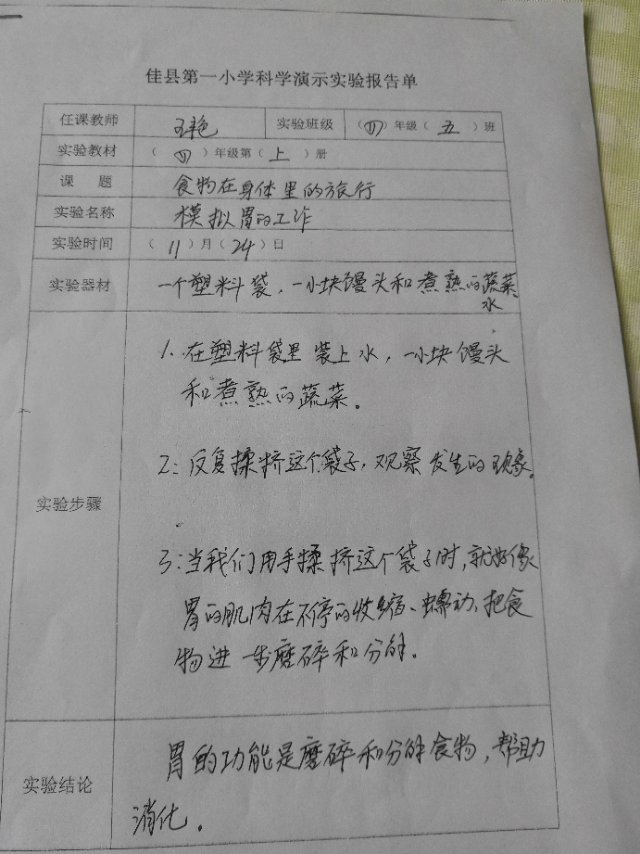 佳县第一小学科学演示实验报告单
任课教师 王艳 实验班级 （四）年级（五）班
实验教材 （四）年级第（上）册
课题 食物在身体里的旅行
实验名称 模拟胃的工作
实验时间 （11）月（24）日
实验器材 一个塑料袋，一小块馒头和煮熟的蔬菜
水
1、在塑料袋里装上水，一小块馒头
和煮熟的蔬菜。
2：反复揉挤这个袋子，观察发生的现象。
实验步骤
3：当我们用手揉挤这个袋子时，就好像
胃的肌肉在不停的收缩、蠕动，把食
物进一步磨碎和分解。
胃的功能是磨碎和分解食物，帮助
实验结论
消化。